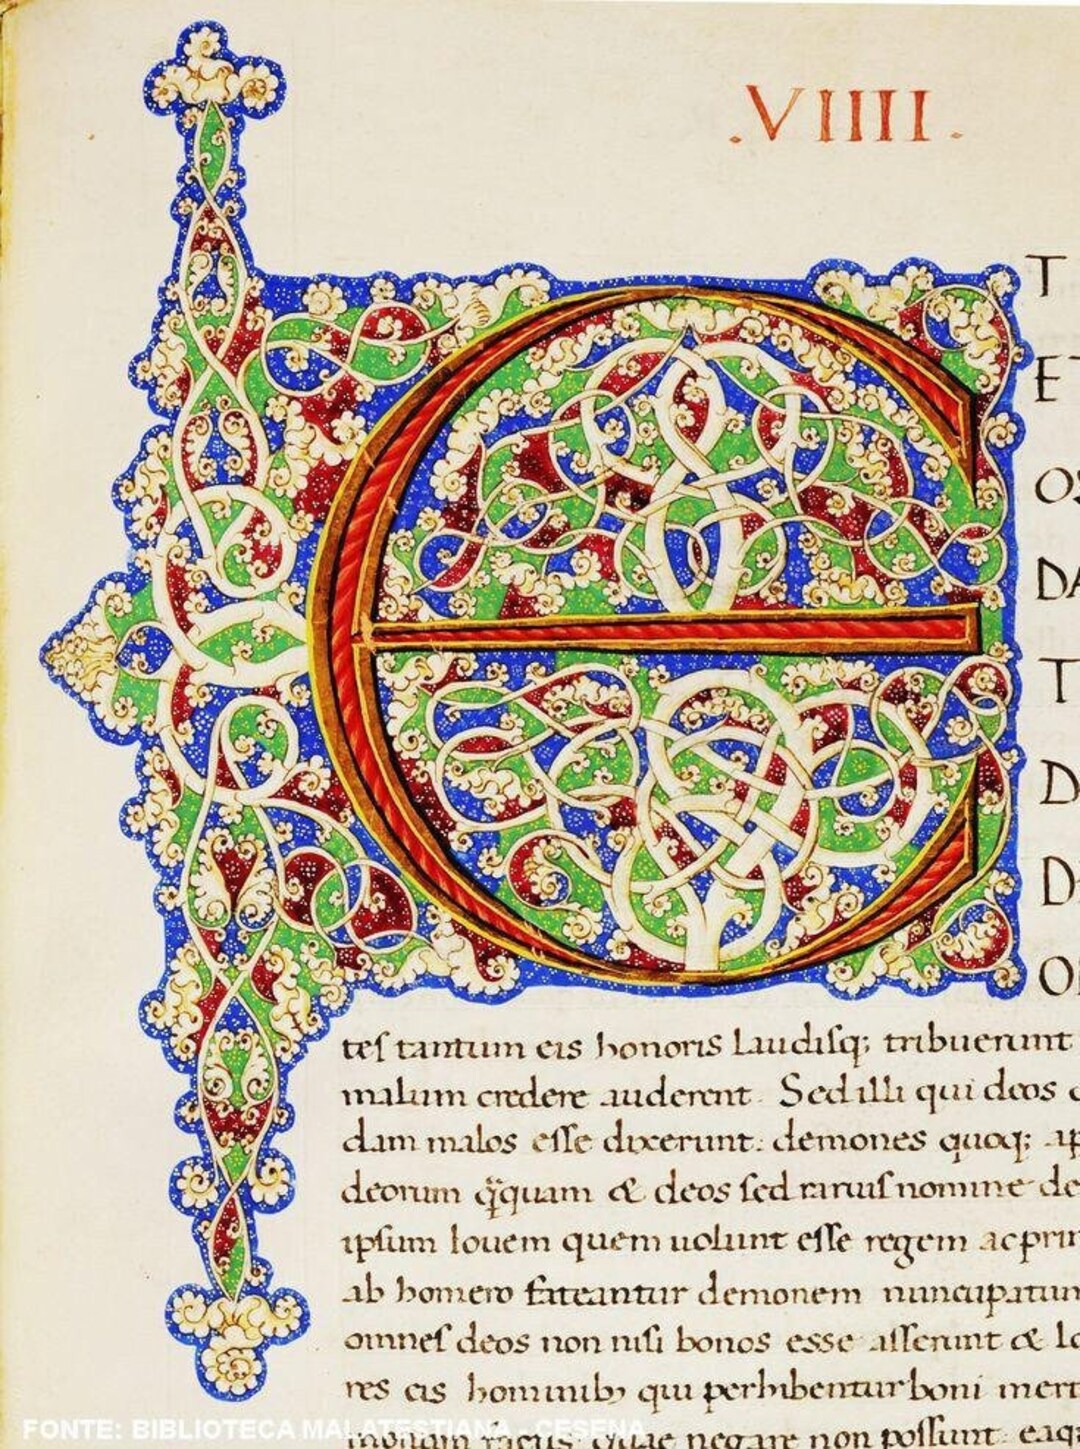 .VIIII.
E T
ET
OS
DA
T
D
D
tes tantum eis honoris laudisq; tribuerunt
malum credere auderent. Sed illi qui deos
dam malos esse dixerunt: demones quoq; ap
deorum q̃quam & deos sed rarius nomine de
ipsum Iouem quem uolunt esse regem ac prin
ab homero fateantur demonem nuncupatum
omnes deos non nisi bonos esse asserunt & lo
res eis hominib; qui perhibentur boni meri
quae negare non possunt eaq;
FONTE: BIBLIOTECA MALATESTIANA - CESENA